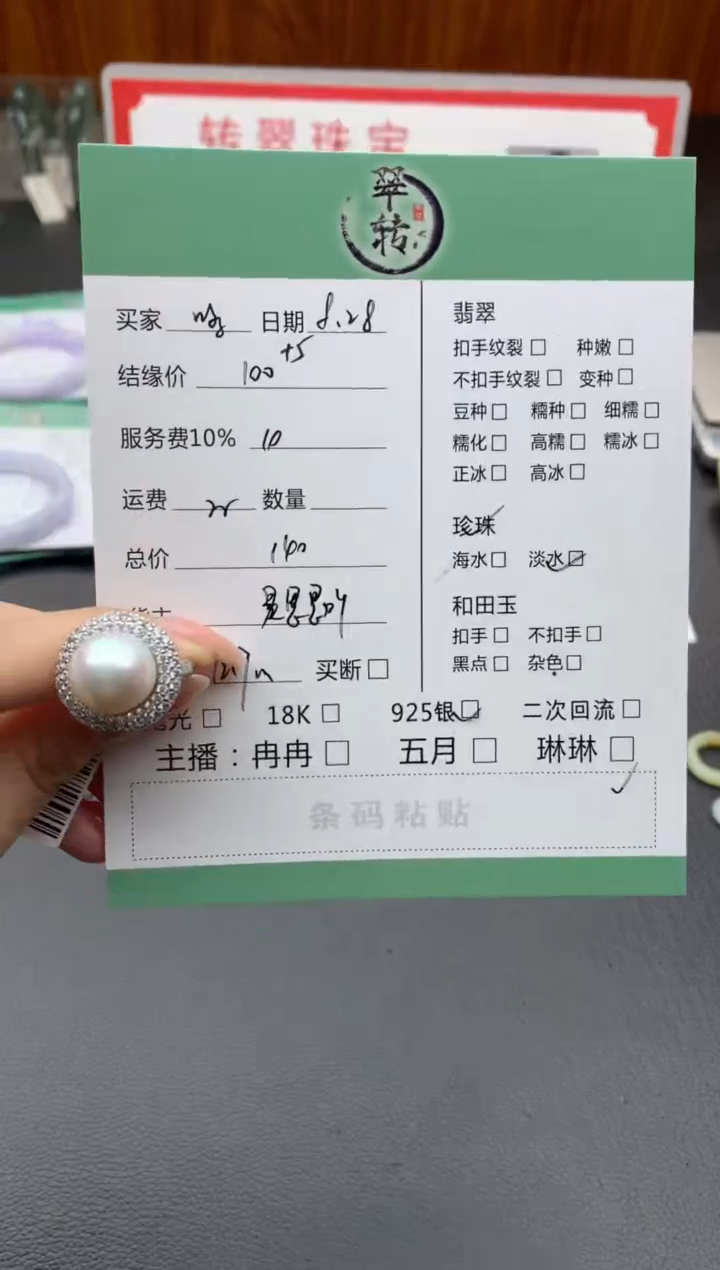 转翠珠宝
翠
转
买家 日期 8.28
结缘价 100 +5
服务费10% 10
运费 数量
总价 140
货主 是思思吖
买断□
光□ 18K□ 925银□ 二次回流□
主播：冉冉□ 五月□ 琳琳□
条码粘贴
翡翠
扣手纹裂□ 种嫩□
不扣手纹裂□ 变种□
豆种□ 糯种□ 细糯□
糯化□ 高糯□ 糯冰□
正冰□ 高冰□
珍珠
海水□ 淡水□
和田玉
扣手□ 不扣手□
黑点□ 杂色□